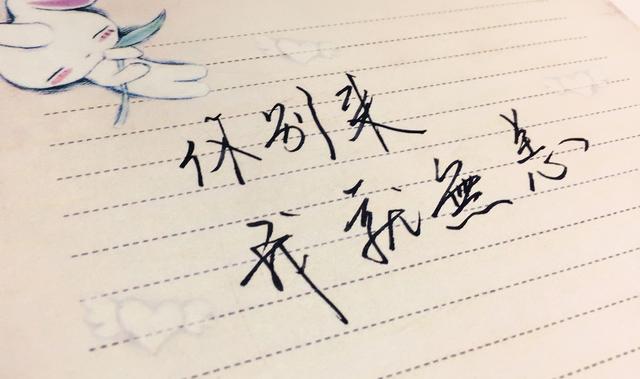 你别来
我就無恙